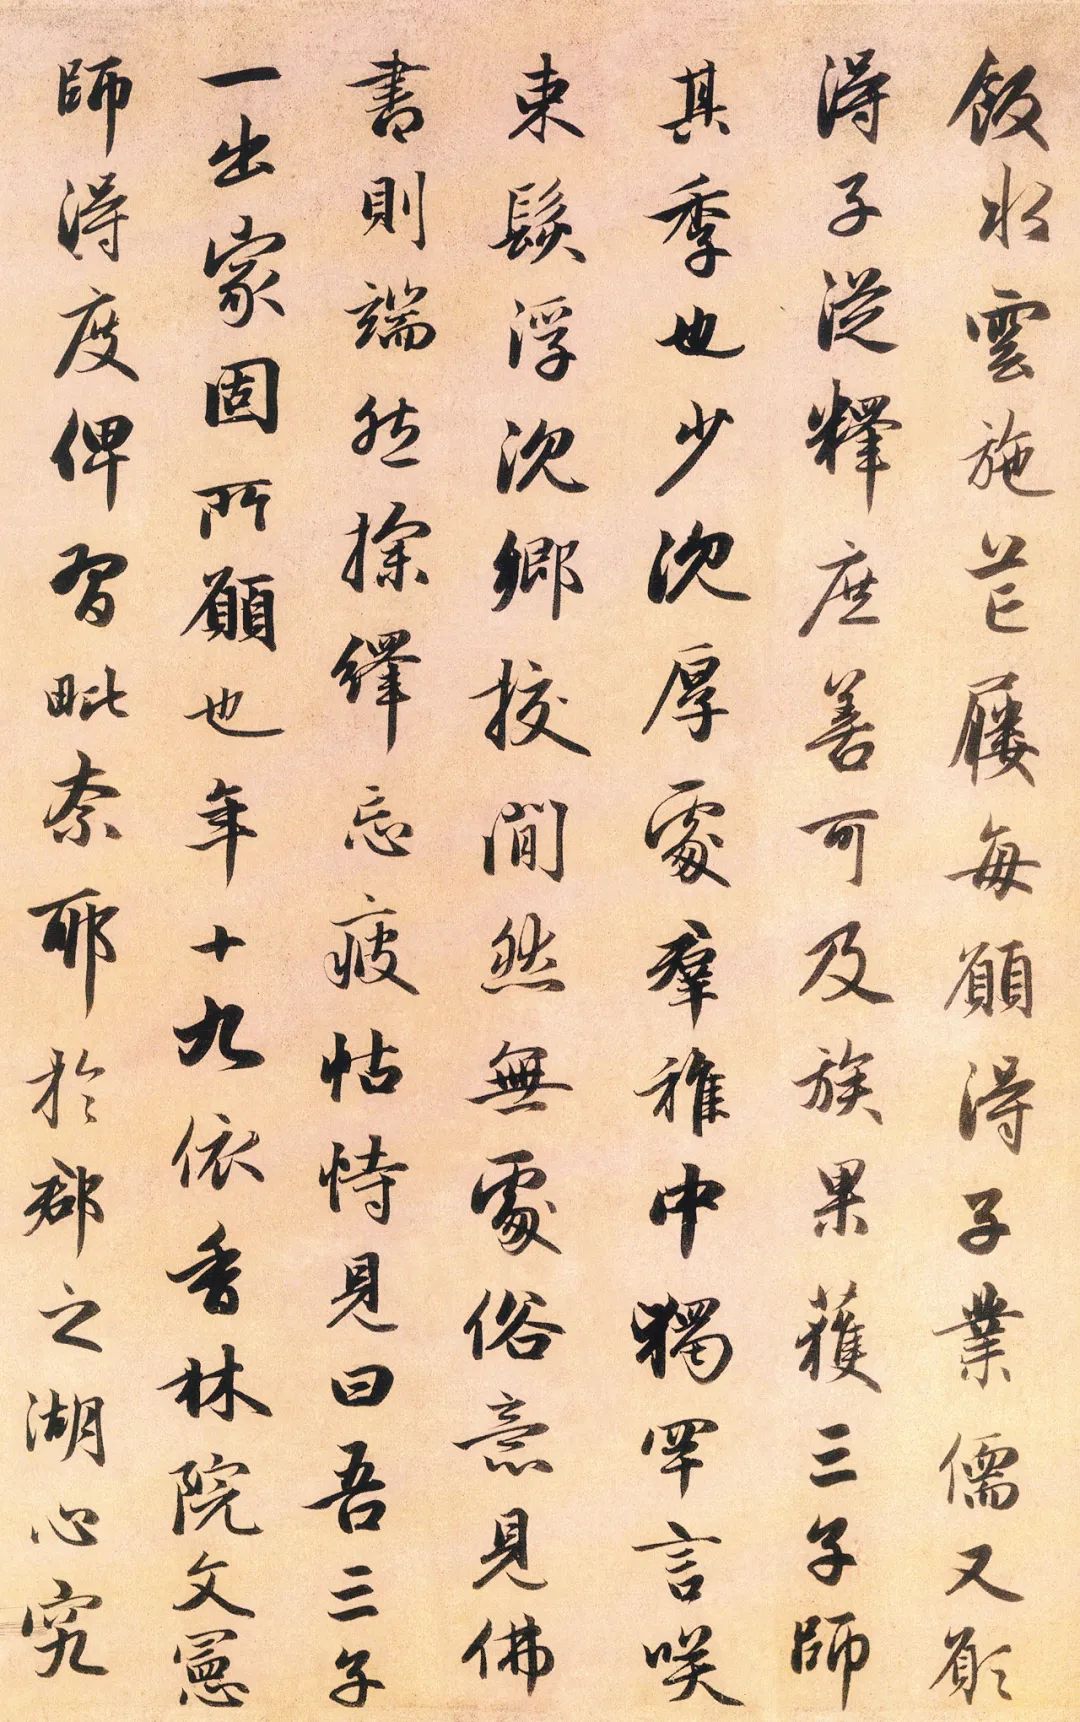 飯水雲施芒屨每願得子業儒又願
得子從釋庶善可及族果獲三子師
其季也少沈厚處羣稚中獨罕言咲
束髮浮沈鄉挍間然無處俗意見佛
書則端然探繹忘疲怙恃見曰吾三子
一出家固所願也年十九依香林院文憲
師得度俾習毗奈耶於郡之湖心究